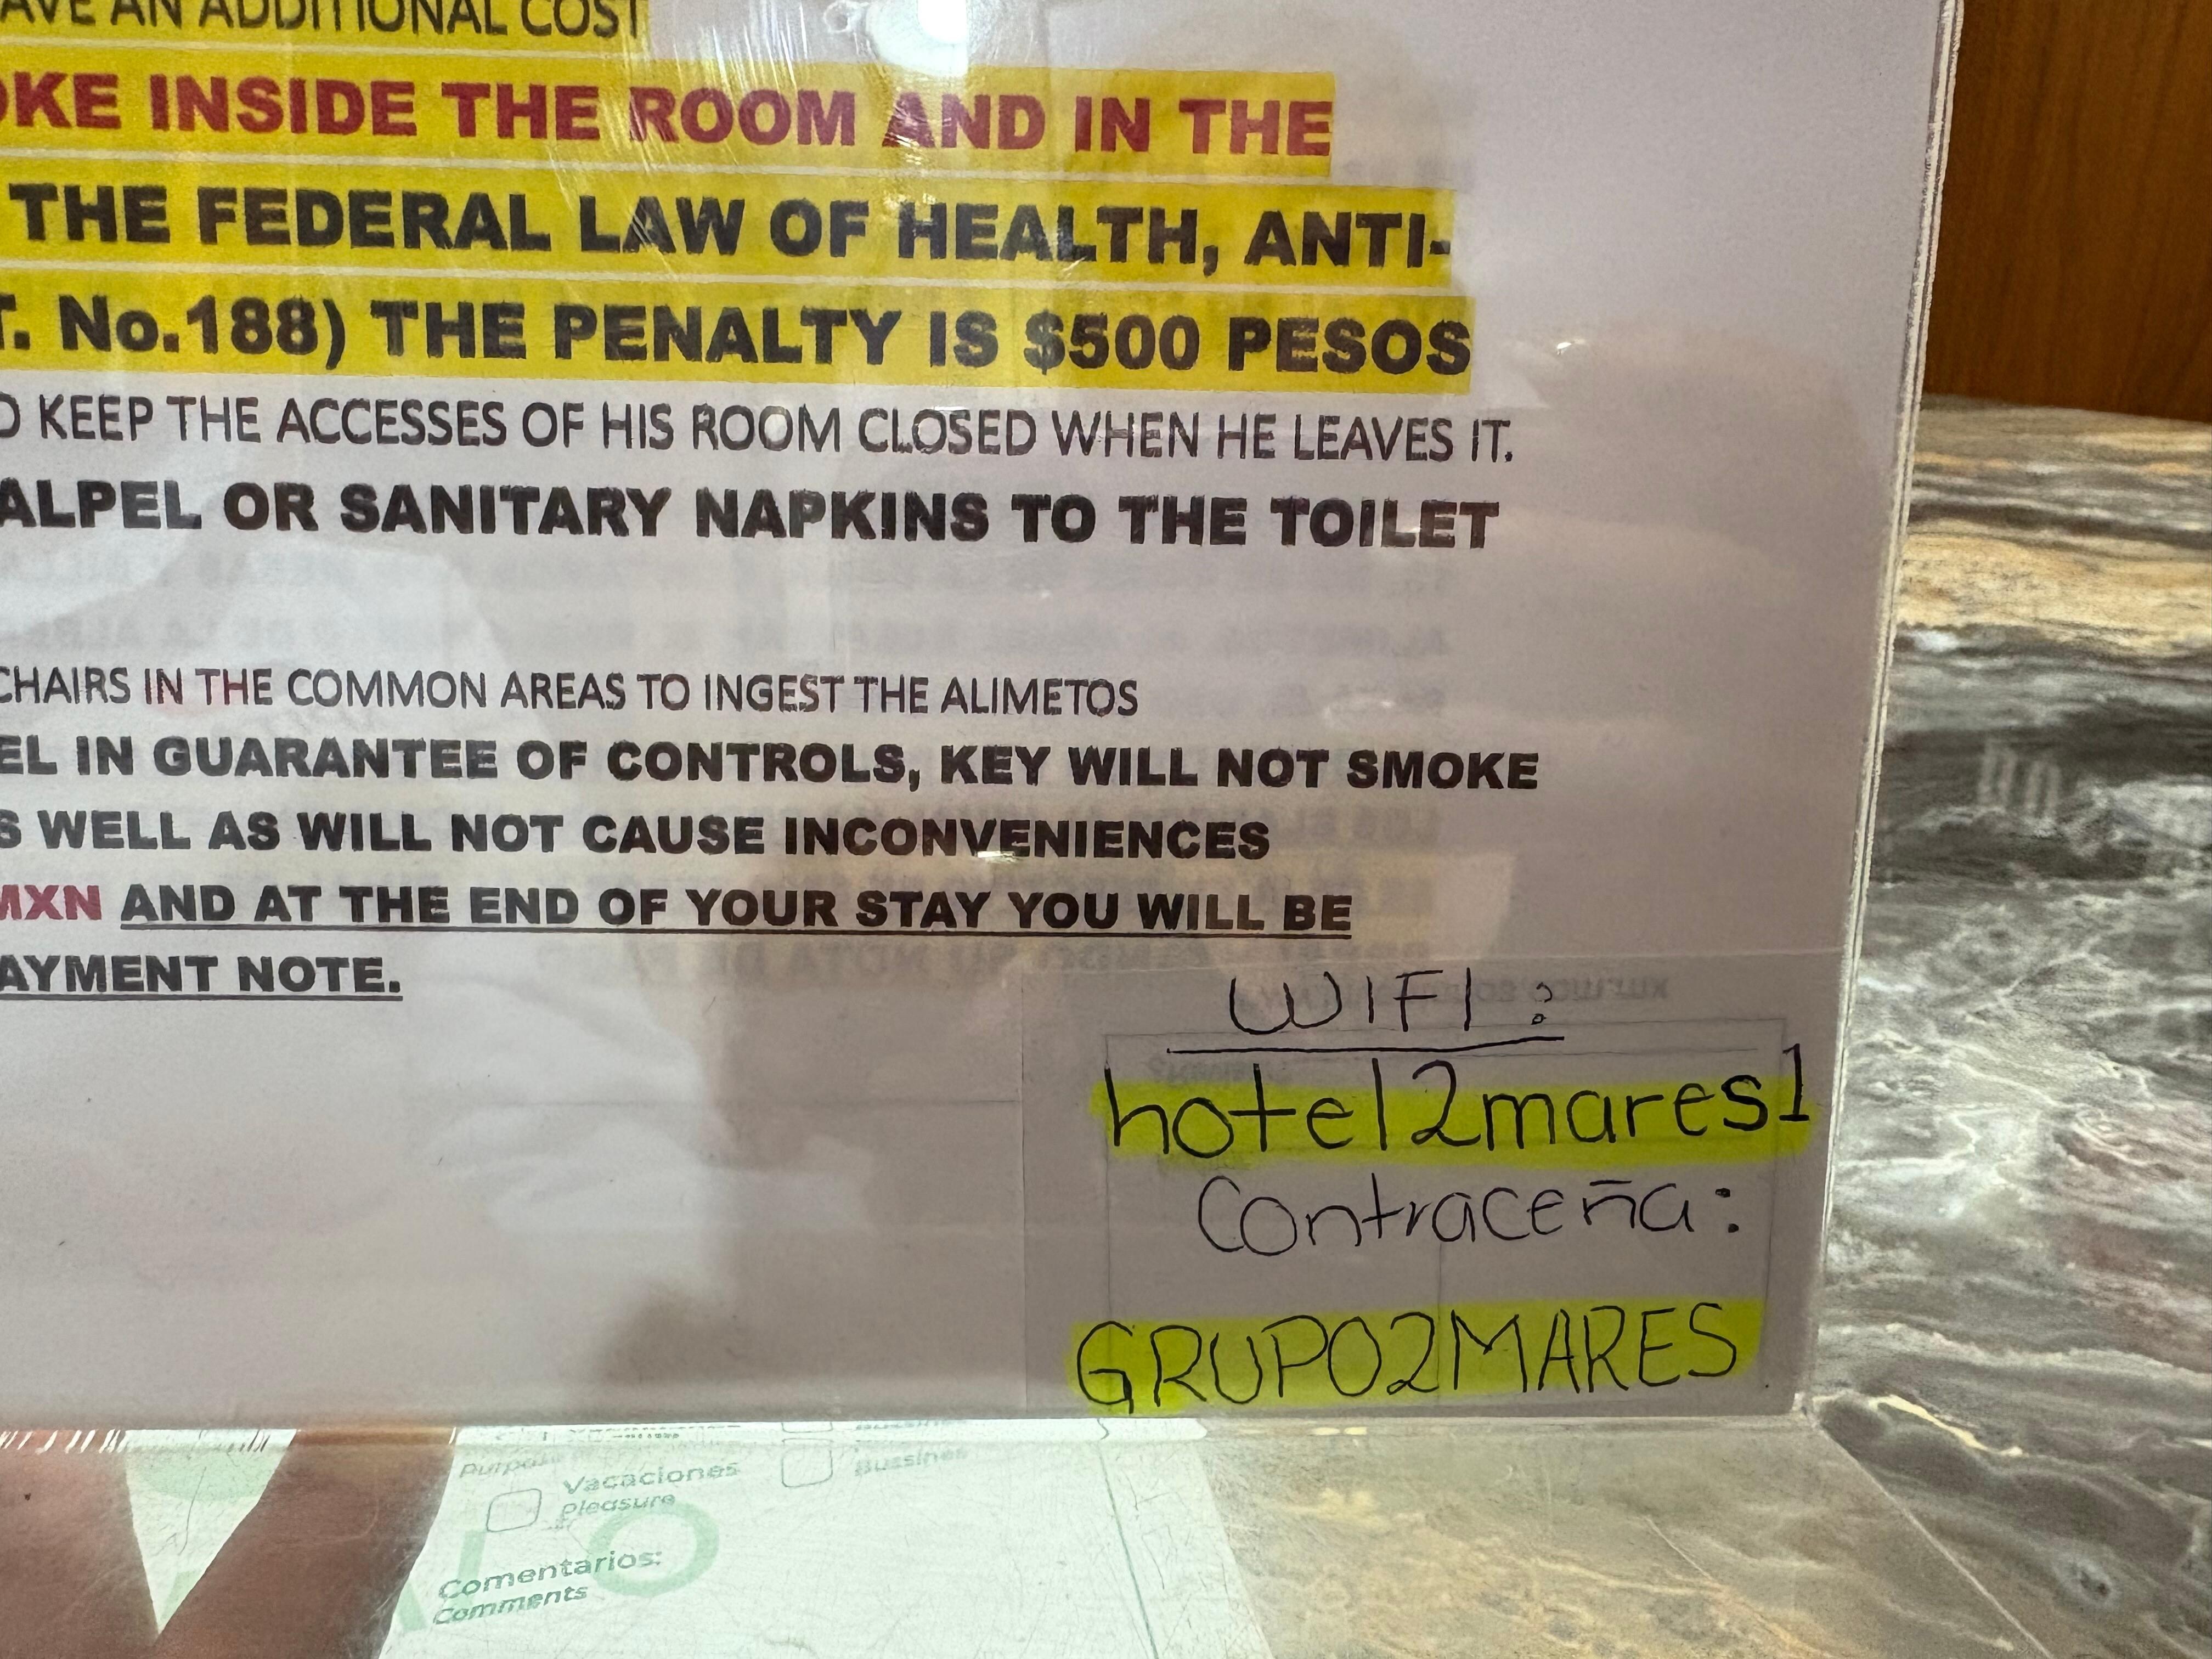 AVE AN ADDITIONAL COST
OKE INSIDE THE ROOM AND IN THE
THE FEDERAL LAW OF HEALTH, ANTI-
T. No.188) THE PENALTY IS $500 PESOS
O KEEP THE ACCESSES OF HIS ROOM CLOSED WHEN HE LEAVES IT.
ALPEL OR SANITARY NAPKINS TO THE TOILET
CHAIRS IN THE COMMON AREAS TO INGEST THE ALIMETOS
EL IN GUARANTEE OF CONTROLS, KEY WILL NOT SMOKE
S WELL AS WILL NOT CAUSE INCONVENIENCES
MXN AND AT THE END OF YOUR STAY YOU WILL BE
AYMENT NOTE.
WIFI:
hotel2mares1
Contraceña:
GRUPO2MARES
Vacaciones
pleasure
Bussines
Comentarios:
Comments